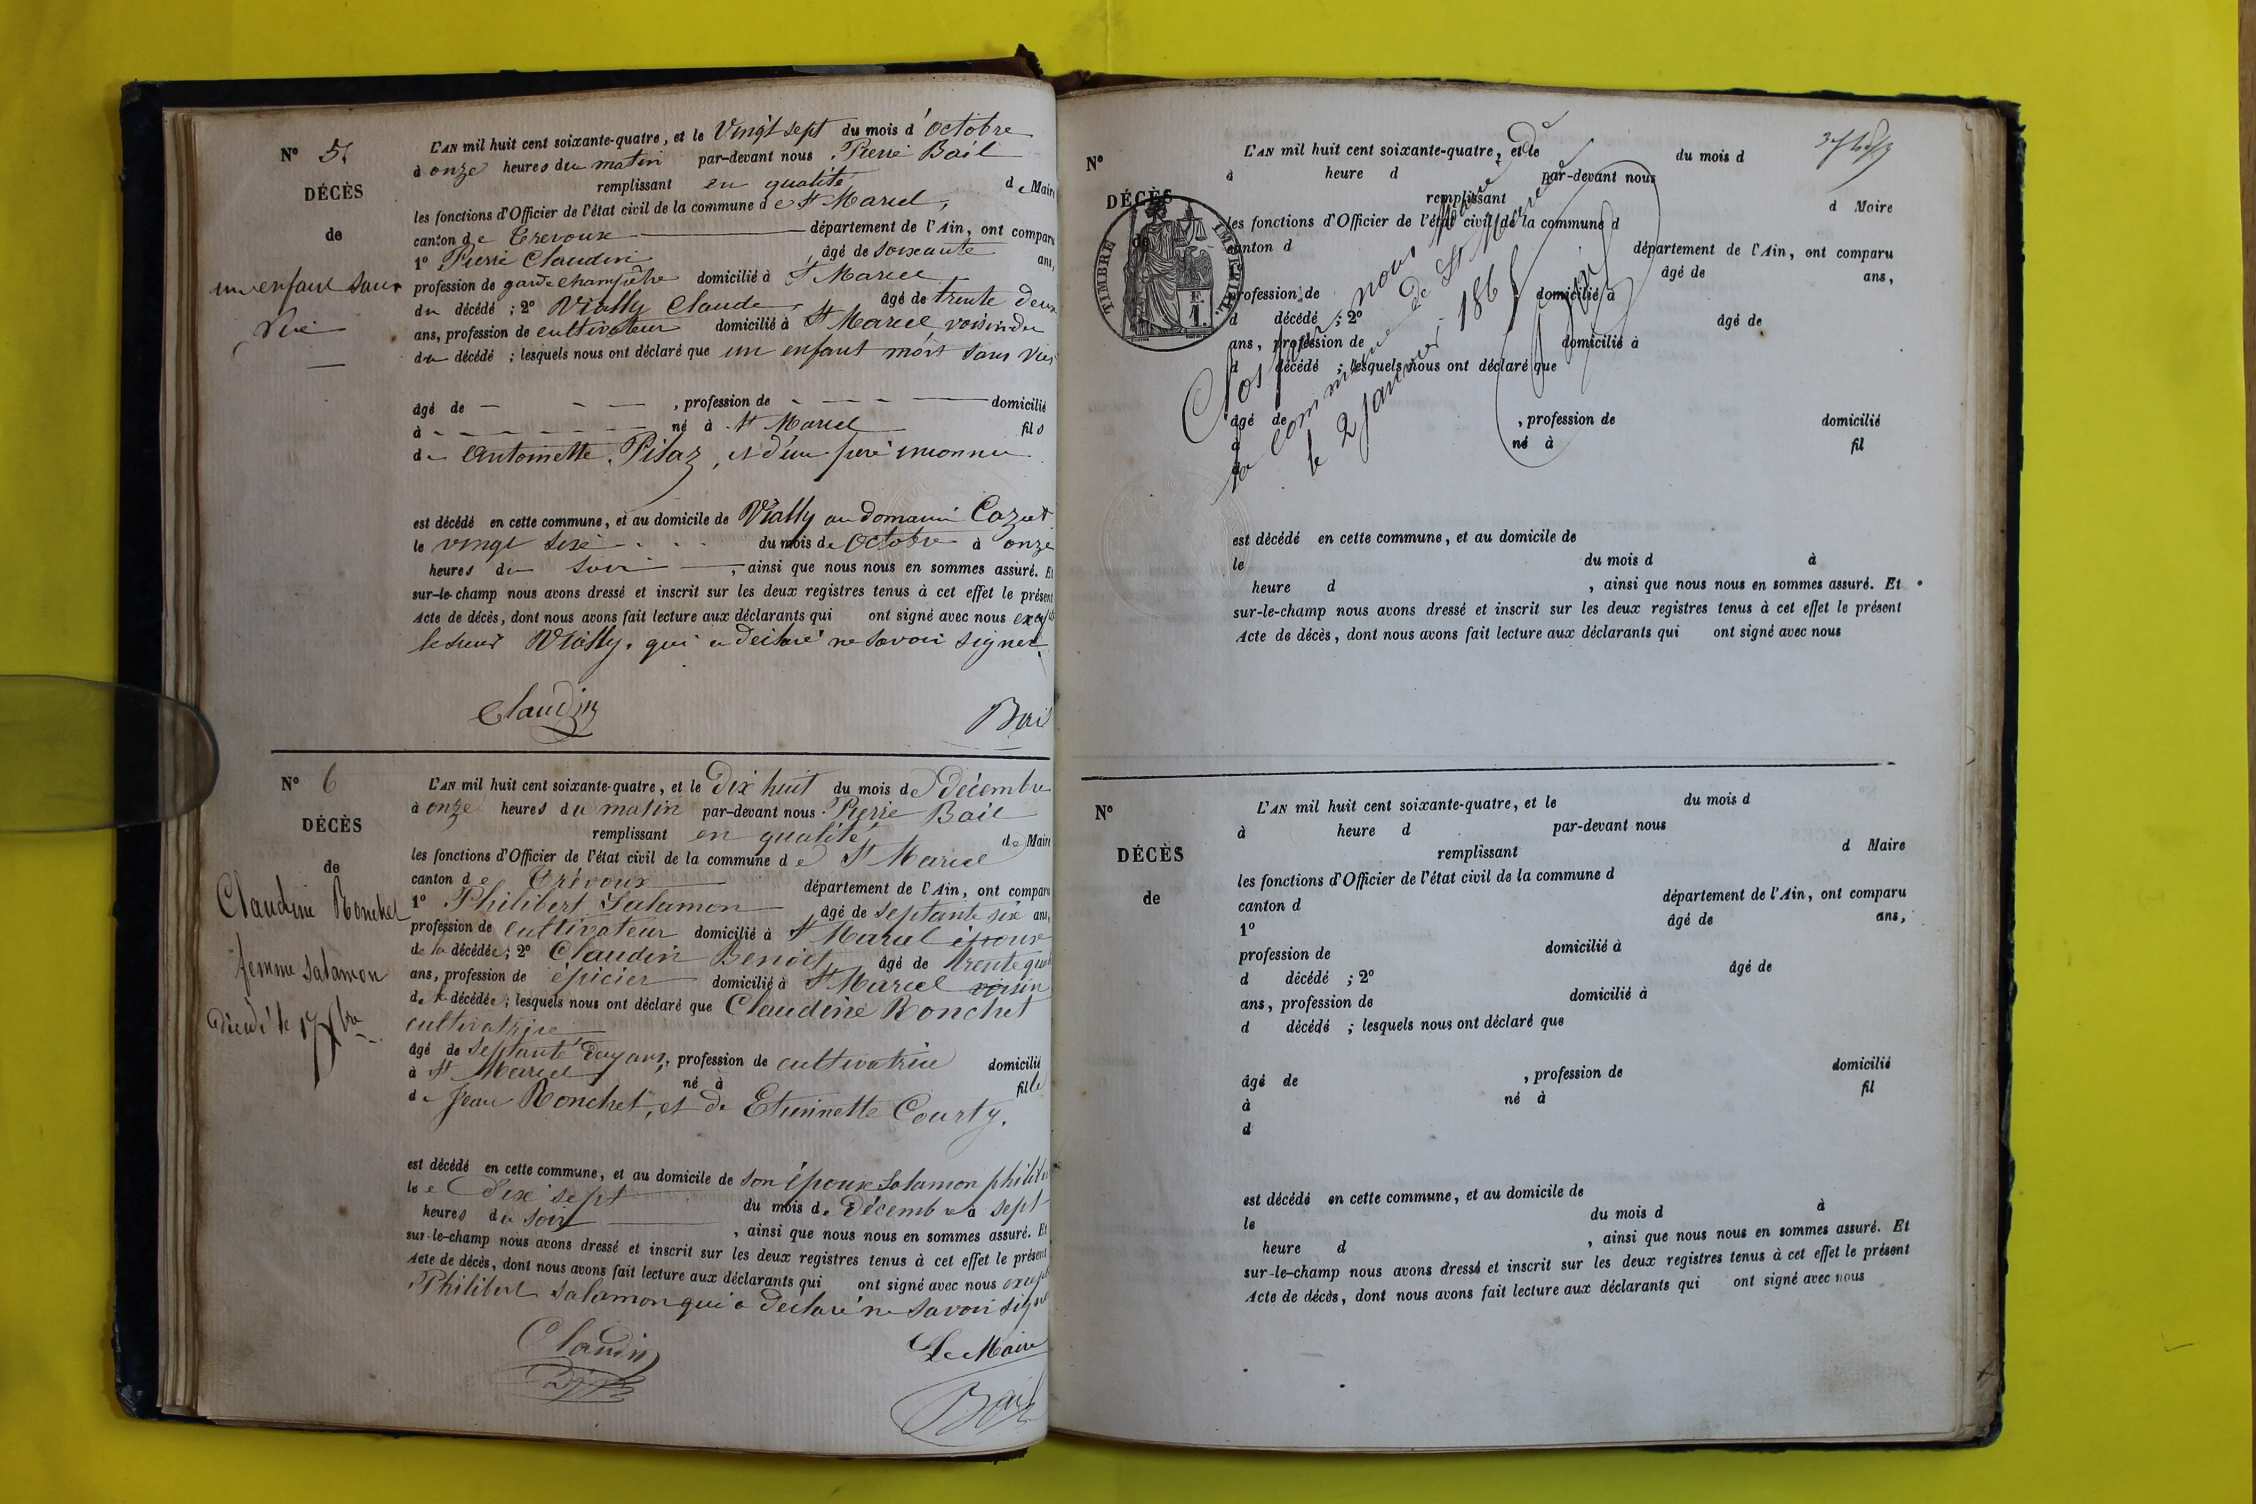 N° 5
DÉCÈS
de
un enfant sans
vie
L'AN mil huit cent soixante-quatre, et le Vingt sept du mois d'octobre
à onze heures du matin par-devant nous Pierre Bail
remplissant en qualité de Maire
les fonctions d'Officier de l'état civil de la commune de St Marcel,
canton de Trevoux département de l'Ain, ont comparu
1° Pierre Claudin âgé de soixante ans,
profession de garde champêtre domicilié à St Marcel
du décédé; 2° Vially Claude, âgé de trente deux
ans, profession de cultivateur domicilié à St Marcel voisin du
du décédé; lesquels nous ont déclaré que un enfant mort sans vie
âgé de , profession de domicilié
à né à St Marcel fils
de Antoinette Pilaz, et d'un père inconnu
est décédé en cette commune, et au domicile de Vially au domaine Cazet
le vingt six du mois de Octobre à onze
heures du soir, ainsi que nous nous en sommes assuré. Et
sur-le-champ nous avons dressé et inscrit sur les deux registres tenus à cet effet le présent
Acte de décès, dont nous avons fait lecture aux déclarants qui ont signé avec nous
le sieur Vially, qui a déclaré ne savoir signer
Claudin
Bail
N° 6
DÉCÈS
de
Claudine Ronchet
femme Salamon
le 17 Xbre
L'AN mil huit cent soixante-quatre, et le Dix huit du mois de Décembre
à onze heures du matin par-devant nous Pierre Bail
remplissant en qualité de Maire
les fonctions d'Officier de l'état civil de la commune de St Marcel
canton de Trévoux département de l'Ain, ont comparu
1° Philibert Salamon âgé de septante six ans,
profession de cultivateur domicilié à St Marcel époux
de la décédée; 2° Claudin Benoit âgé de trente quatre
ans, profession de épicier domicilié à St Marcel voisin
de la décédée; lesquels nous ont déclaré que Claudine Ronchet
cultivatrice
âgé de septante deux ans, profession de cultivatrice domicilié
à St Marcel né à fille
de Jean Ronchet, et de Etiennette Courty.
est décédé en cette commune, et au domicile de son époux Salamon philibert
le Dix sept du mois de Décembre à sept
heures du soir, ainsi que nous nous en sommes assuré. Et
sur-le-champ nous avons dressé et inscrit sur les deux registres tenus à cet effet le présent
Acte de décès, dont nous avons fait lecture aux déclarants qui ont signé avec nous excepté
Philibert Salamon qui a déclaré ne savoir signer
Claudin
Le Maire
Bail
N°
DÉCÈS
de
TIMBRE IMPÉRIAL
F.
1.
L'AN mil huit cent soixante-quatre, et le du mois d
à heure d par-devant nous
remplissant d Maire
les fonctions d'Officier de l'état civil de la commune d
canton d département de l'Ain, ont comparu
âgé de ans,
profession de domicilié à
d décédé; 2° âgé de
ans, profession de domicilié à
d décédé; lesquels nous ont déclaré que
âgé de , profession de domicilié
à né à fil
d
Clos par nous Maire de
la commune de St Marcel
le 2 janvier 1865
Bail
est décédé en cette commune, et au domicile de
le du mois d à
heure d , ainsi que nous nous en sommes assuré. Et
sur-le-champ nous avons dressé et inscrit sur les deux registres tenus à cet effet le présent
Acte de décès, dont nous avons fait lecture aux déclarants qui ont signé avec nous
N°
DÉCÈS
de
L'AN mil huit cent soixante-quatre, et le du mois d
à heure d par-devant nous
remplissant d Maire
les fonctions d'Officier de l'état civil de la commune d
canton d département de l'Ain, ont comparu
1° âgé de ans,
profession de domicilié à
d décédé; 2° âgé de
ans, profession de domicilié à
d décédé; lesquels nous ont déclaré que
âgé de , profession de domicilié
à né à fil
d
est décédé en cette commune, et au domicile de
le du mois d à
heure d , ainsi que nous nous en sommes assuré. Et
sur-le-champ nous avons dressé et inscrit sur les deux registres tenus à cet effet le présent
Acte de décès, dont nous avons fait lecture aux déclarants qui ont signé avec nous